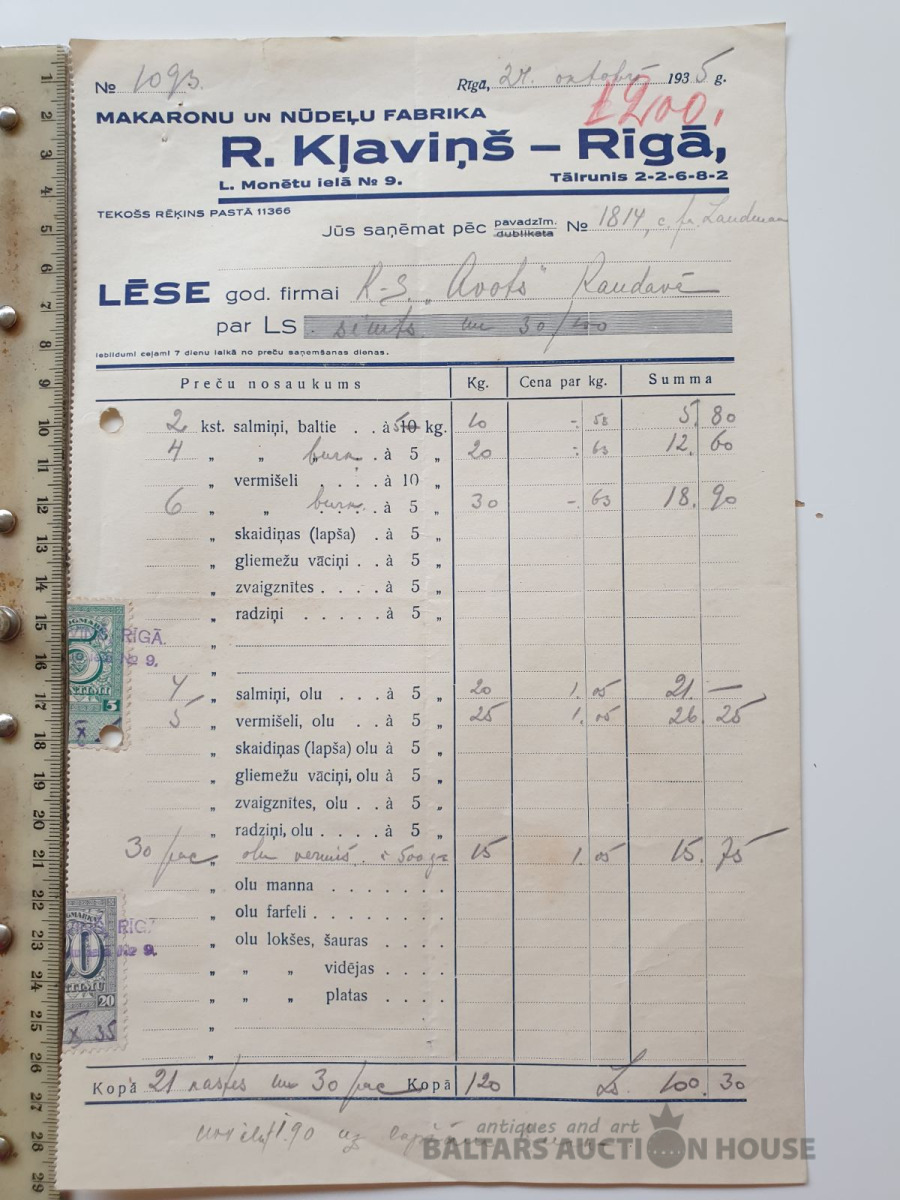 № 1093.
Rīgā, 24. oktobrī 1935 g.
1200,
MAKARONU UN NŪDEĻU FABRIKA
R. Kļaviņš – Rīgā,
L. Monētu ielā № 9. Tālrunis 2-2-6-8-2
TEKOŠS RĒĶINS PASTĀ 11366
Jūs saņēmat pēc pavadzīm. dublikata № 1814,
LĒSE god. firmai K-S. „Avots" Raudavē
par Ls simts un 30/100
Iebildumi ceļami 7 dienu laikā no preču saņemšanas dienas.
Preču nosaukums Kg. Cena par kg. Summa
2 kst. salmiņi, baltie . . à 5 10 kg. 10 -. 58 5. 80
4 „ „ burn. . à 5 „ 20 -. 63 12. 60
„ vermišeli . . . . à 10 „
6 „ „ burn. . . à 5 „ 30 -. 63 18. 90
„ skaidiņas (lapša) . à 5 „
„ gliemežu vāciņi . . à 5 „
„ zvaigznītes . . . . à 5 „
„ radziņi . . . . . à 5 „
„
4 „ salmiņi, olu . . . à 5 „ 20 1. 05 21. —
5 „ vermišeli, olu . . à 5 „ 25 1. 05 26. 25
„ skaidiņas (lapša) olu à 5 „
„ gliemežu vāciņi, olu à 5 „
„ zvaigznītes, olu . . à 5 „
„ radziņi, olu . . . . à 5 „
30 pac „ olu vermiš. à 500 gr 15 1. 05 15. 75
„ olu manna . . . . . . .
„ olu farfeli . . . . . . .
„ olu lokšes, šauras . . . .
„ „ „ vidējas . . . .
„ „ „ platas . . . .
„
„
Kopā 21 nastes un 30 pac Kopā 120 Ls. 100. 30
1.90 uz
RĪGĀ.
№ 9.
5
RĪGĀ
№ 9.
20
X 35
antiques and art
BALTARS AUCTION HOUSE
1 2 3 4 5 6 7 8 9 10 11 12 13 14 15 16 17 18 19 20 21 22 23 24 25 26 27 28 29